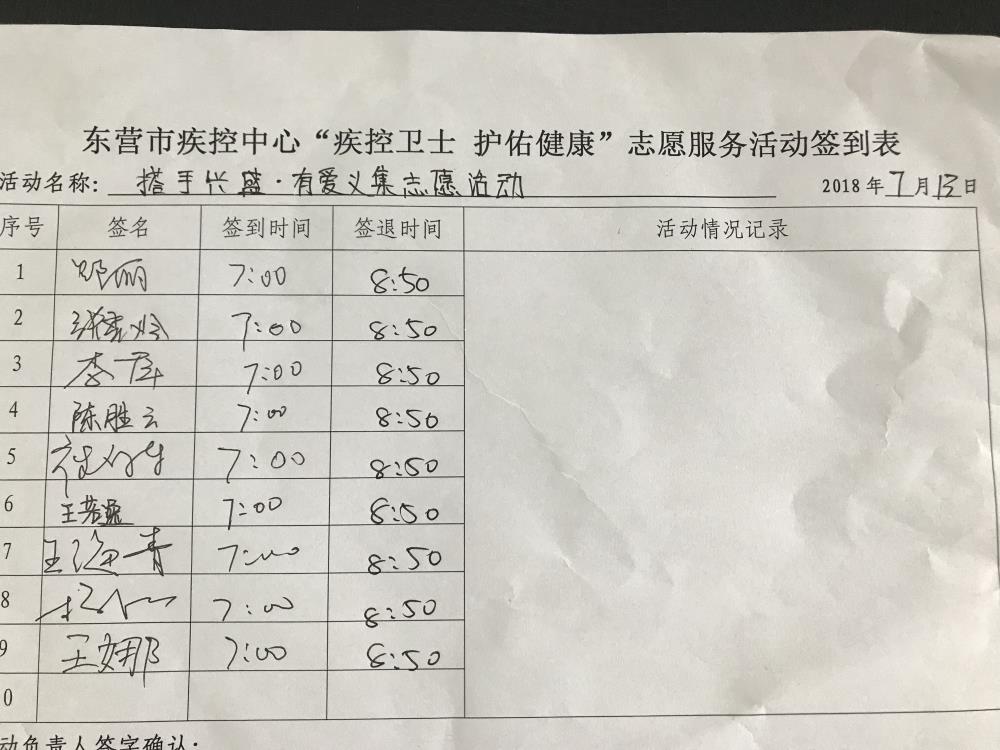 东营市疾控中心“疾控卫士 护佑健康”志愿服务活动签到表
活动名称: 搭手兴盛·有爱义集志愿活动 2018年7月13日
序号 签名 签到时间 签退时间 活动情况记录
1 邓丽 7:00 8:50
2 7:00 8:50
3 李军 7:00 8:50
4 陈胜云 7:00 8:50
5 7:00 8:50
6 王若逸 7:00 8:50
7 王海青 7:00 8:50
8 7:00 8:50
9 王娜 7:00 8:50
0
动负责人签字确认: